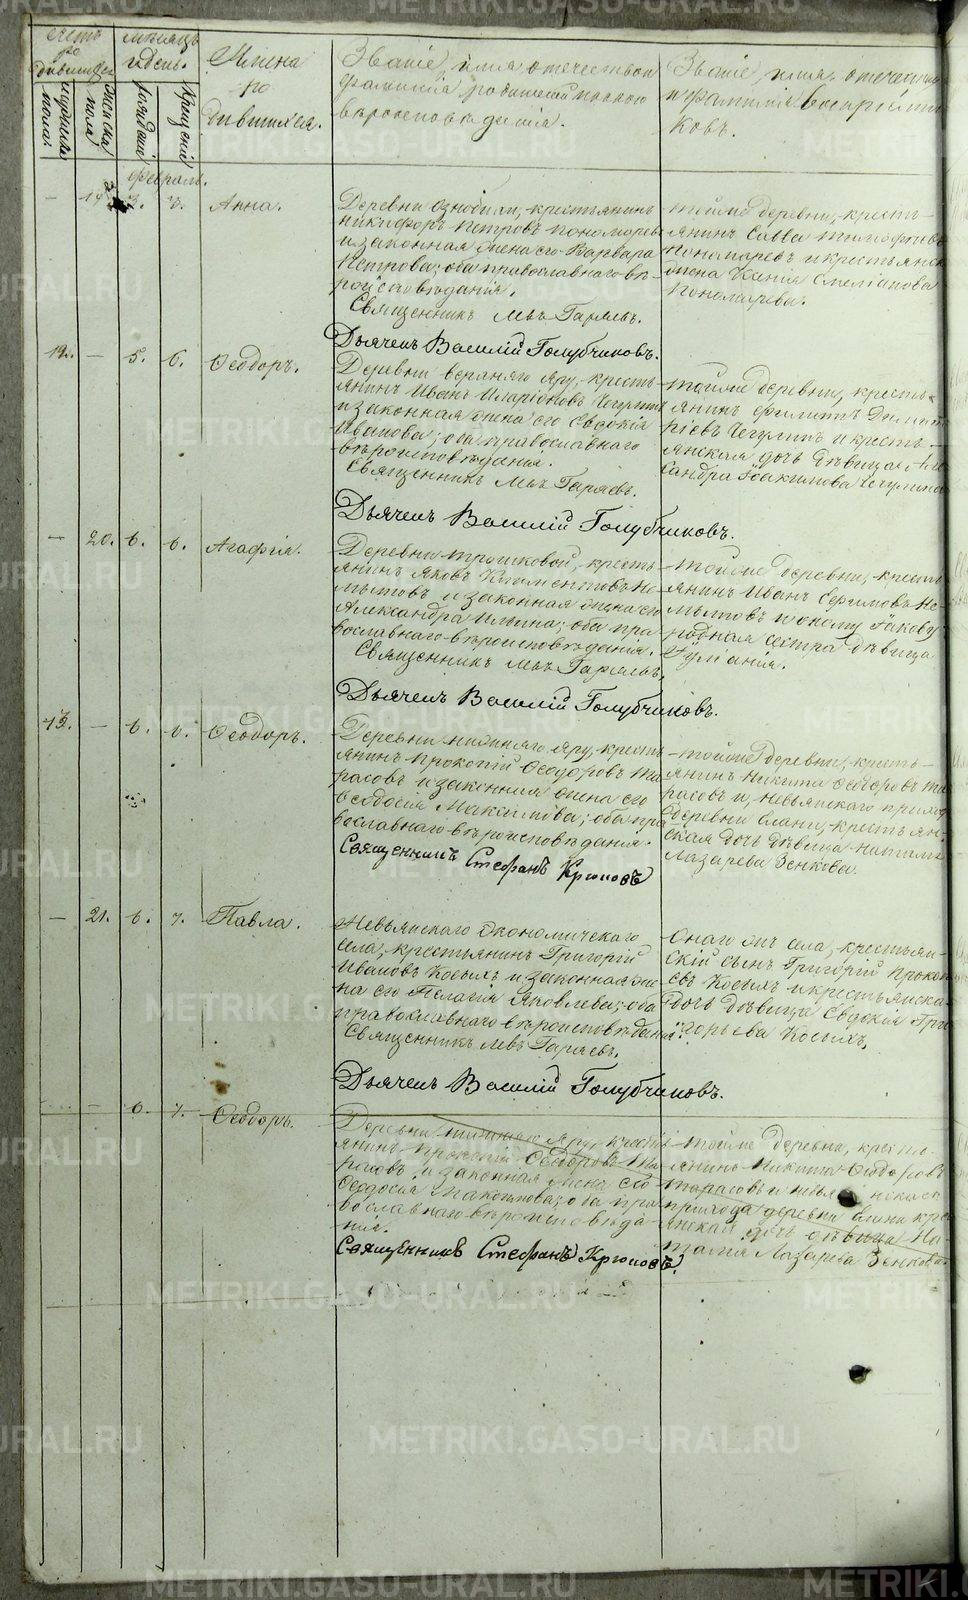 Счетъ
ро
дившихся
мужеска
пола.
женска
пола
Мѣсяцъ
и день.
рожденія
крещенія
Имена
ро
дившихся.
Званіе, имя отечество и
фамилія родителей и какого
вѣроисповѣданія.
Званіе, имя отечество
и фамилія воспріемни
ковъ.
Февраль.
— 19. 3. 3. Анна.
Деревни Ознобихи, крестьянинъ
Никифоръ Петровъ Пономаревъ
и законная жена его Варвара
Петрова; оба православнаго вѣ-
роисповѣданія.
Священникъ Левъ Гаряевъ.
Дьячекъ Василій Голубчиковъ.
тойже деревни, кресть-
янинъ Савва Тимофѣевъ
Пономаревъ и крестьянск
жена Ксенія Емеліанова
Пономарева.
12. — 5. 6. Ѳеодоръ.
Деревни верхняго Яру, кресть-
янинъ Иванъ Иларіоновъ Чегулинъ
и законная жена его Евдокія
Иванова; оба православнаго
вѣроисповѣданія.
Священникъ Левъ Гаряевъ.
Дьячекъ Василій Голубчиковъ.
тойже деревни, кресть-
янинъ Филиппъ Дмит
ріевъ Чегулинъ и кресть-
янская дочь дѣвица Але
сандра Іоакимова Чегулина
— 20. 6. 6. Агафія.
Деревни Трошковой, кресть-
янинъ Яковъ Климентовъ Не-
мытовъ и законная жена его
Александра Ильина; оба пра-
вославнаго вѣроисповѣданія.
Священникъ Левъ Гаряевъ.
Дьячекъ Василій Голубчиковъ.
тойже деревни, кресть
янинъ Иванъ Ефимовъ Не-
мытовъ и оному Іакову
родная сестра дѣвица
Іуліанія.
13. — 6. 6. Ѳеодоръ.
Деревни нижняго Яру, кресть
янинъ Прокопій Ѳеодоровъ Та
расовъ и законная жена его
Ѳеодосія Максимова; оба пра
вославнаго вѣроисповѣданія.
Священникъ Стефанъ Крюковъ
тойже деревни, кресть-
янинъ Никита Ѳеодоровъ Та
расовъ и, Невьянскаго приход
деревни Елани, крестьян-
ская дочь дѣвица Наталь
Лазарева Зенкова.
— 21. 6. 7. Павла.
Невьянскаго Экономическаго
села, крестьянинъ Григорій
Ивановъ Косыхъ и законная же
на его Пелагія Яковлева; оба
православнаго вѣроисповѣданія.
Священникъ Левъ Гаряевъ.
Дьячекъ Василій Голубчиковъ.
Онаго жъ села, крестьян-
скій сынъ Григорій Прокоп
евъ Косыхъ и крестьянска
дочь дѣвица Евдокія Гри
горьева Косыхъ.
— 6. 7. Ѳеодоръ.
Деревни нижняго Яру, кресть
янинъ Прокопій Ѳеодоровъ Та
расовъ и законная жена его
Ѳеодосія Максимова; оба пра
вославнаго вѣроисповѣда-
нія.
Священникъ Стефанъ Крюковъ.
тойже деревни, кресть-
янинъ Никита Ѳеодоровъ
Тарасовъ и Невьянскаго
прихода деревни Елани кре
янская дочь дѣвица На
талія Лазарева Зенкова.
METRIKI.GASO-URAL.RU